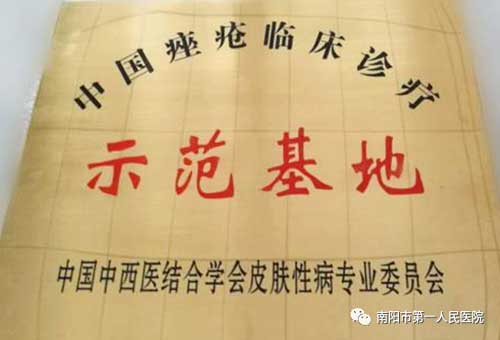 中国痤疮临床诊疗
示范基地
中国中西医结合学会皮肤性病专业委员会
南阳市第一人民医院